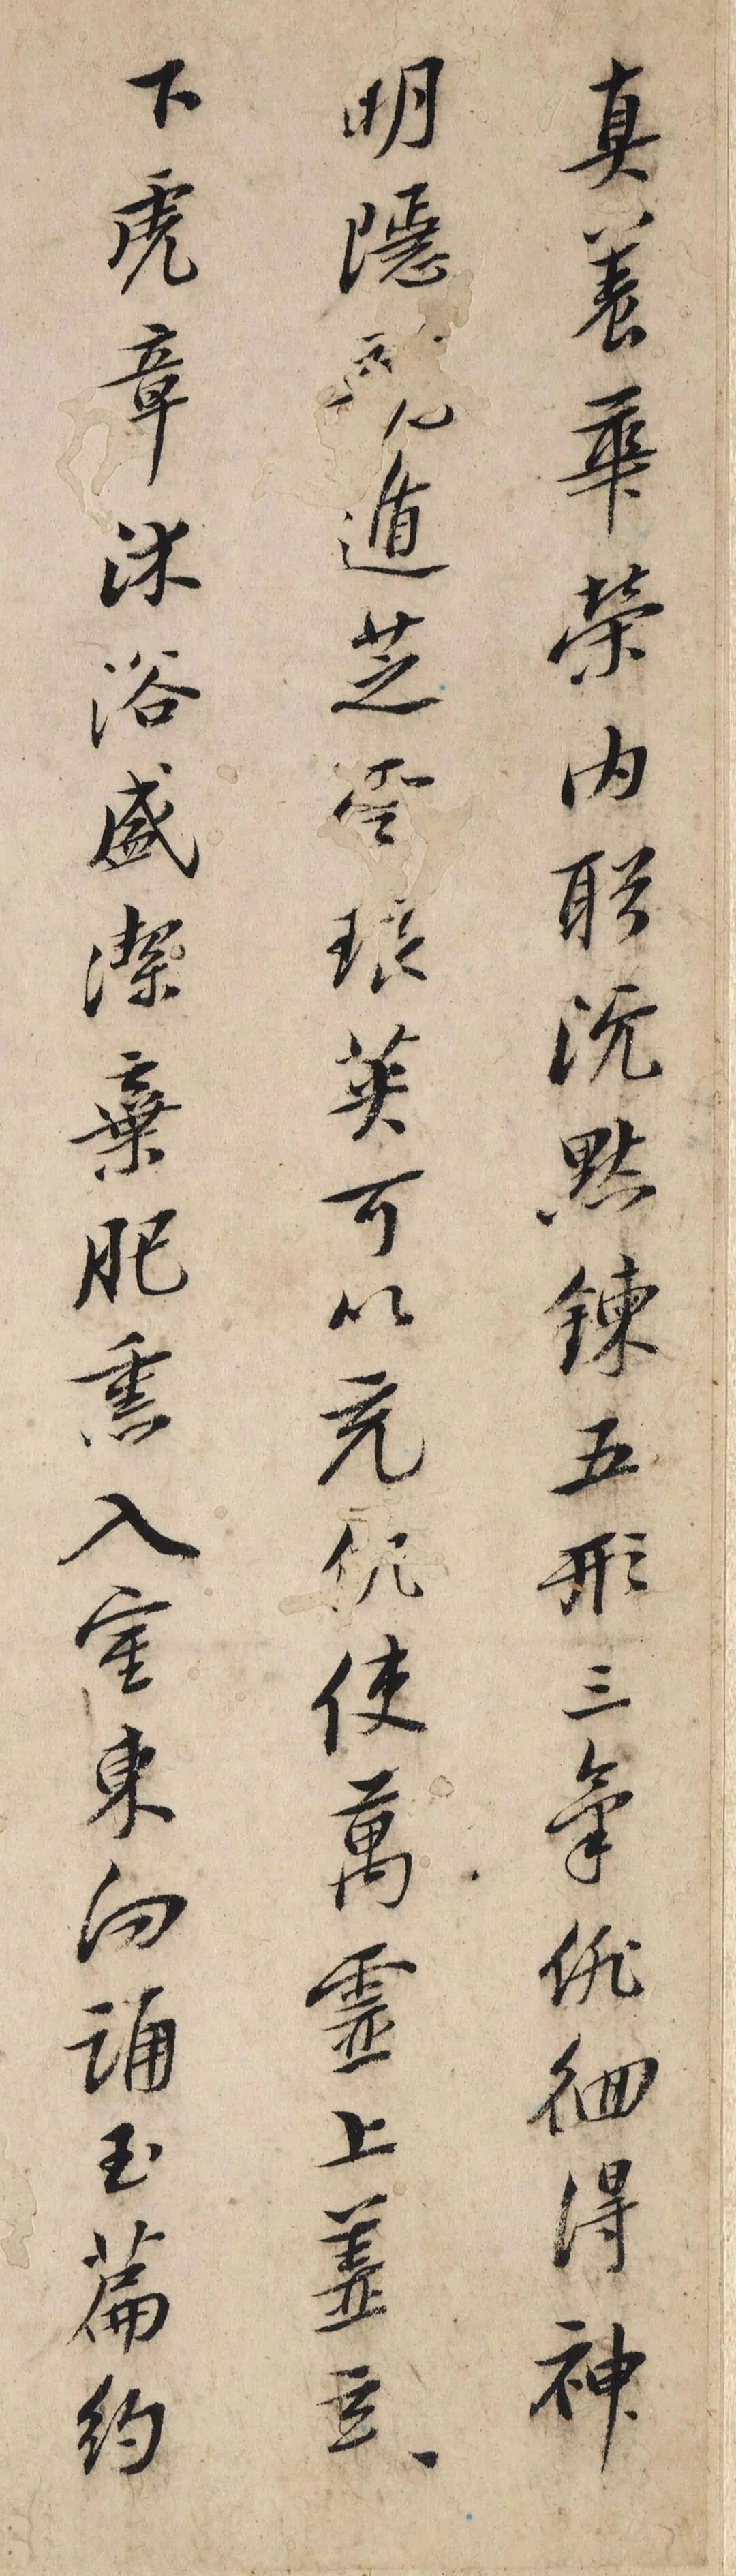 真養華榮内盼沉默鍊五形三氣徘徊得神
明隱遁芝雲琅英可以充飢使萬靈上蓋玄、
下虎章沐浴盛潔棄肥熏入室東向誦玉篇約